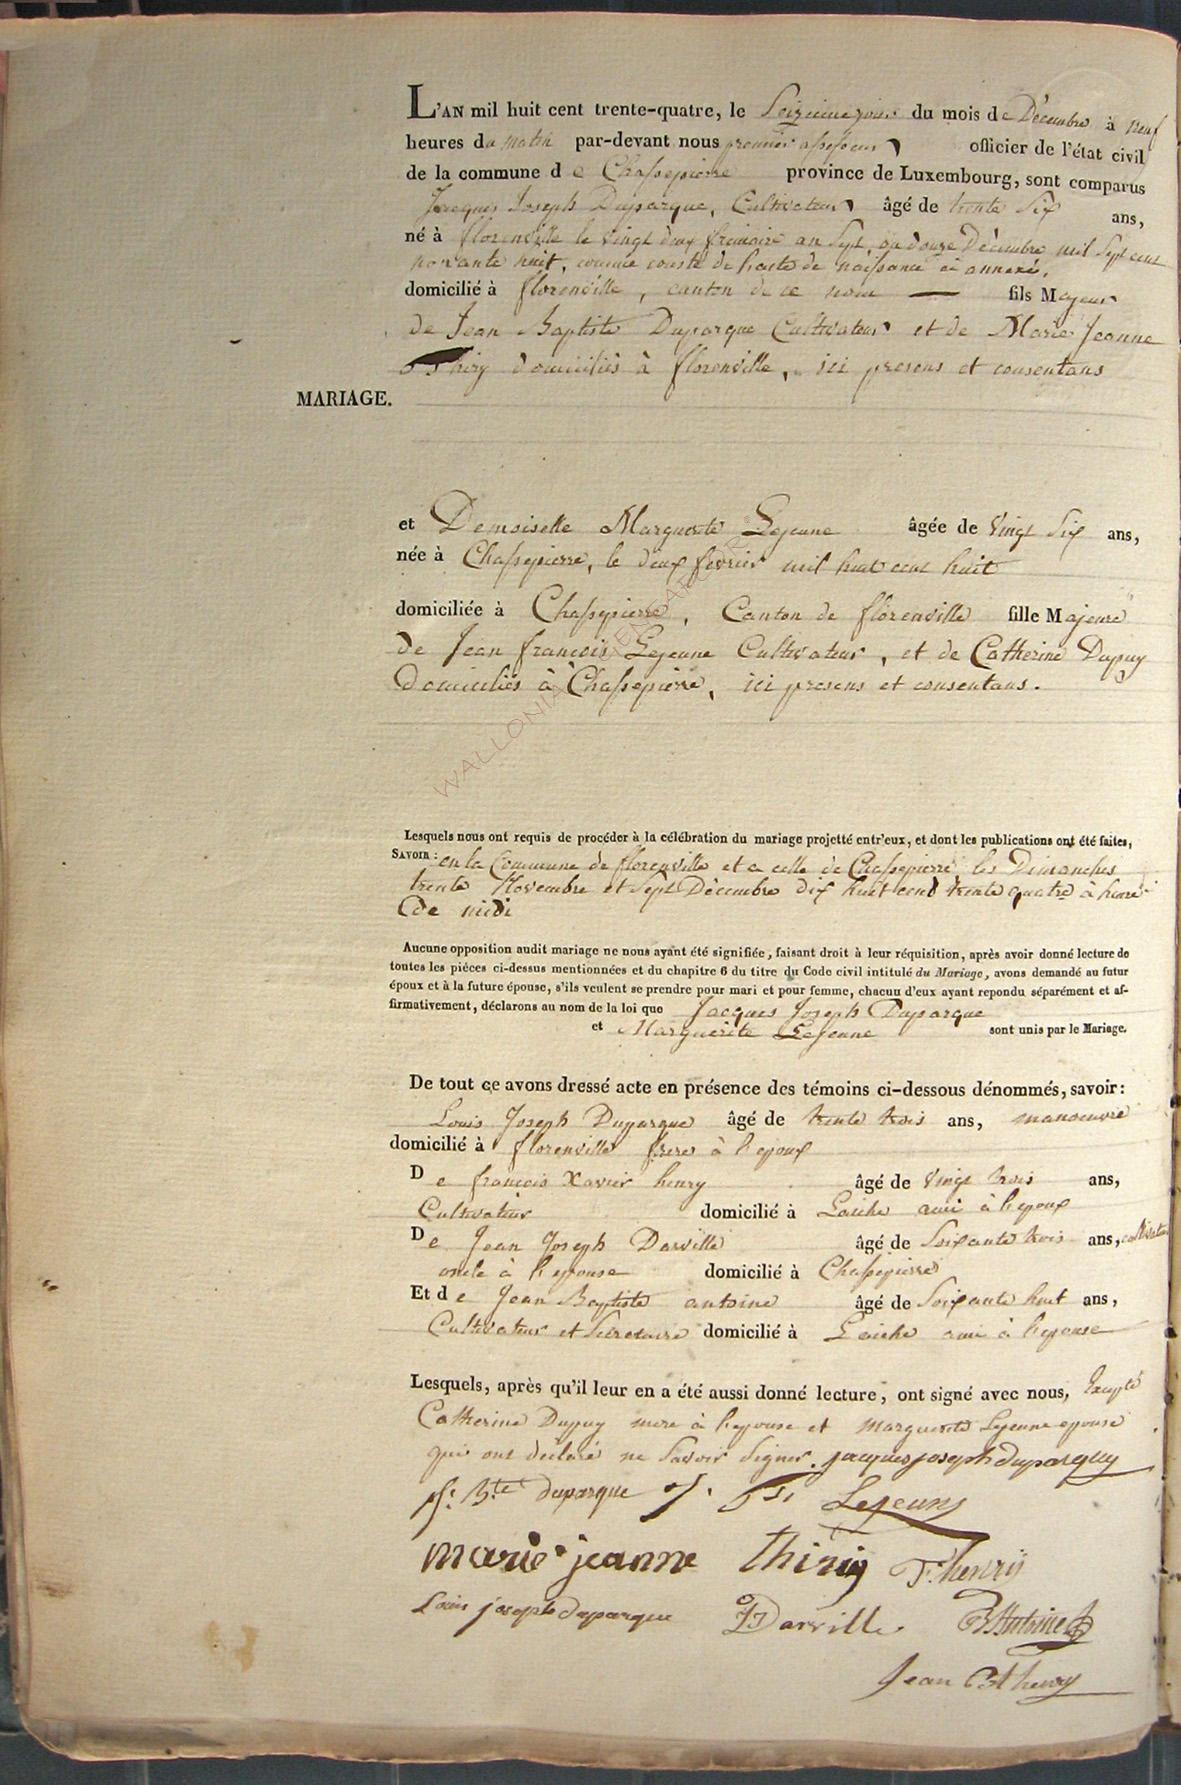 L'AN mil huit cent trente-quatre, le Seizieme jour du mois de Décembre à neuf
heures du matin par-devant nous premier assesseur officier de l'état civil
de la commune de Chassepierre province de Luxembourg, sont comparus
Jacques Joseph Duparque, Cultivateur âgé de trente Six ans,
né à florenville le vingt deux frimaire an Sept, ou douze Décembre mil Sept cent
nonante huit, comme conste de l'acte de naissance ci annexé,
domicilié à florenville, canton de ce nom — fils Majeur
de Jean Baptiste Duparque Cultivateur et de Marie Jeanne
Thiry domiciliés à florenville, ici presens et consentans
MARIAGE.
et Demoiselle Marguerite Lejeune âgée de Vingt Six ans,
née à Chassepierre, le deux fevrier mil huit cent huit
domiciliée à Chassepierre, Canton de florenville fille Majeure
de Jean francois Lejeune Cultivateur, et de Catherine Dupuy
Domiciliés à Chassepierre, ici presens et consentans.
WALLONIA
Lesquels nous ont requis de procéder à la célébration du mariage projetté entr'eux, et dont les publications ont été faites,
SAVOIR: en la Commune de florenville et a celle de Chassepierre, les Dimanches
trente Novembre et Sept Décembre dix huit cent trente quatre à heure
de midi
Aucune opposition audit mariage ne nous ayant été signifiée, faisant droit à leur réquisition, après avoir donné lecture de
toutes les piéces ci-dessus mentionnées et du chapitre 6 du titre du Code civil intitulé du Mariage, avons demandé au futur
époux et à la future épouse, s'ils veulent se prendre pour mari et pour femme, chacun d'eux ayant repondu séparément et af-
firmativement, déclarons au nom de la loi que Jacques Joseph Duparque
et Marguerite Lejeune sont unis par le Mariage.
De tout ce avons dressé acte en présence des témoins ci-dessous dénommés, savoir:
Louis Joseph Duparque âgé de trente trois ans, manoeuvre
domicilié à florenville frere à l'epoux
De francois Xavier henry âgé de Vingt trois ans,
Cultivateur domicilié à Laiche ami à l'epoux
De Jean Joseph Darville âgé de Soixante trois ans, cultivateur
oncle à l'epouse domicilié à Chassepierre
Et de Jean Baptiste antoine âgé de Soixante huit ans,
Cultivateur et Secretaire domicilié à Laiche ami à l'epouse
Lesquels, après qu'il leur en a été aussi donné lecture, ont signé avec nous, Excepté
Catherine Dupuy mere à l'epouse et Marguerite Lejeune epouse
qui ont déclaré ne Savoir Signer. jacques joseph duparque
Bte duparque Lejeune
marie jeanne thiriy F. henrij
Louis joseph duparque JJ Darville JB Antoine
Jean Bt henry